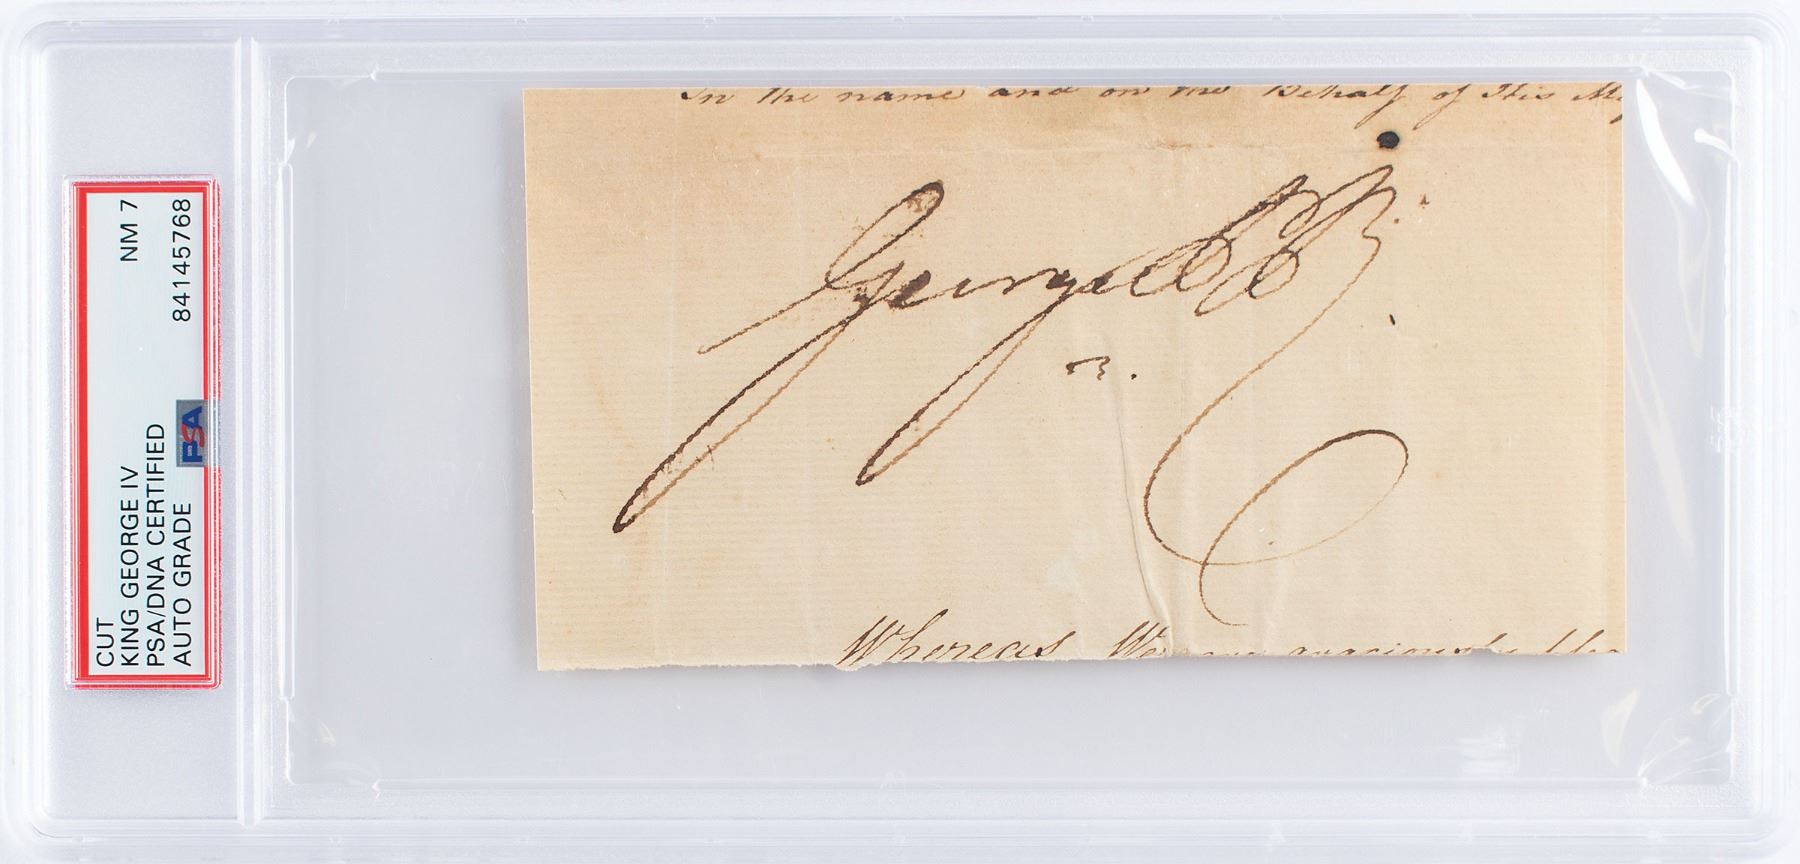 CUT
KING GEORGE IV NM 7
PSA/DNA CERTIFIED
AUTO GRADE 84145768
PSA
In the name and on the Behalf of His
George P R
Whereas We graciously